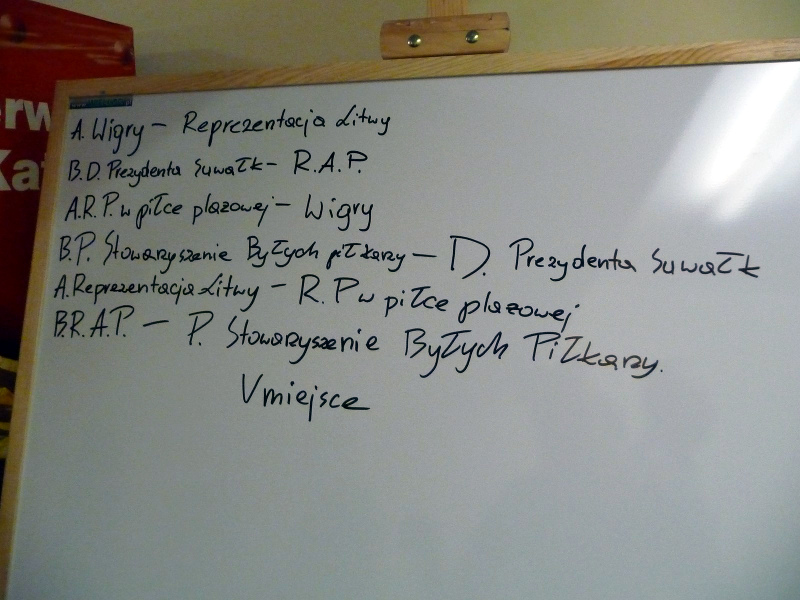 erw
Ka
A. Wigry – Reprezentacja Litwy
B.D. Prezydenta Suwałk – R.A.P.
A.R.P. w piłce plażowej – Wigry
B.P. Stowarzyszenie Byłych piłkarzy – D. Prezydenta Suwałk
A. Reprezentacja Litwy – R.P w piłce plażowej
B.R.A.P. – P. Stowarzyszenie Byłych Piłkarzy.
V miejsce